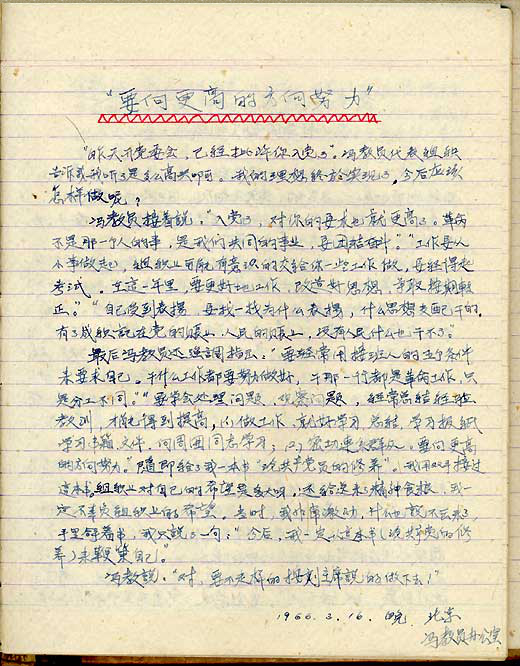 “要向更高的方向努力”
“昨天开党委会,已经批准你入党了”。冯教员代表组织
告诉我,我听了是多么高兴啊。我的理想终于实现了。今后应该
怎样做呢?
冯教员接着说:“入党了,对你的要求也就更高了。革命
不是那一个人的事,是我们共同的事业,要团结奋斗。”“工作要从
小事做起,组织上可能有意识的交给你一些工作做,要经得起
考试。在这一年里,要更好地工作,改造好思想,争取按期转
正。”“自己受到表揚,要找一找为什么表揚,什么思想支配干的。
有了成績記在党的賬上,人民的賬上,没有人民什么也干不了。”
最后冯教员还强调指出:“要经常用接班人的五个条件
来要求自己。干什么工作都要努力做好,干那一行都是革命工作,只
是分工不同。”“要学会处理问题、观察问题,经常总结经验
教训,才能得到提高,(1)做工作、就好学习、总结,学习报纸
学习书籍、文件,向周围同志学习;(2)密切连系群众。要向更高
的方向努力。”随即给了我一本书“论共产党员的修养”。我用双手接过
这本书。组织上对自己的希望是多大呀,还给送来了精神食粮,我一
定不辜负组织上的希望。当时,我非常激动,什么也说不出来了
手里捧着书,我只说了一句:“今后,我一定以这本书《论共产党员的修
养》来鞭策自己。”
冯教员说:“对,要不走样的按刘主席说的做下去!”
1966.3.16.晚 北京
冯教员办公室